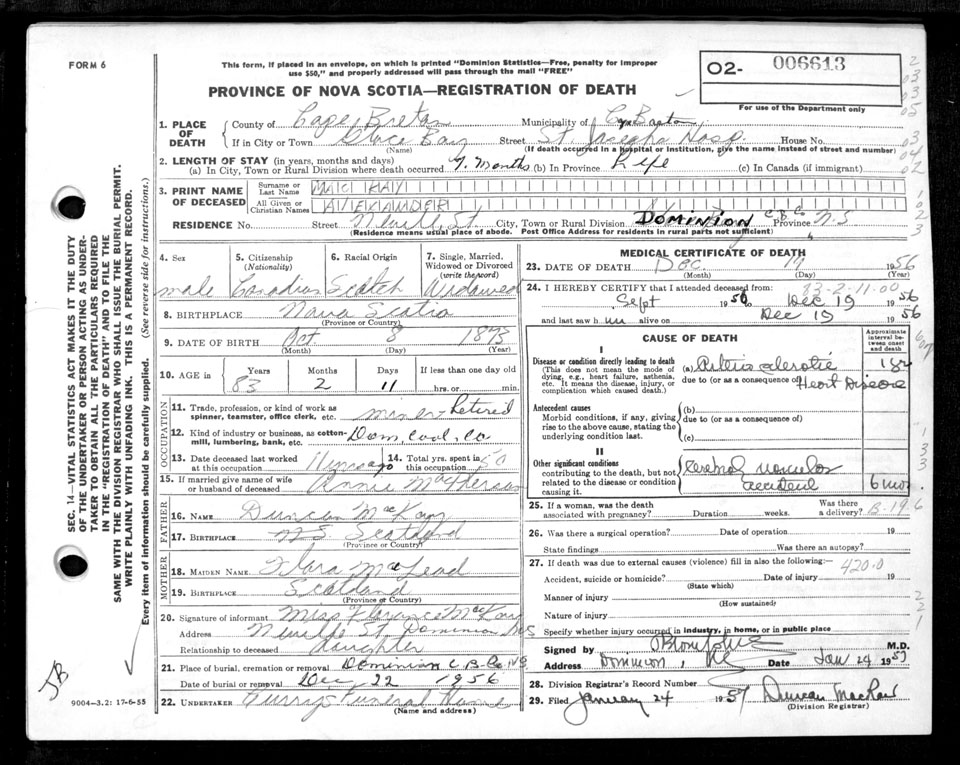 FORM 6
This form, if placed in an envelope, on which is printed "Dominion Statistics—Free, penalty for improper
use $50," and properly addressed will pass through the mail "FREE"
O2- 006613
For use of the Department only
PROVINCE OF NOVA SCOTIA—REGISTRATION OF DEATH
1. PLACE OF DEATH
County of Cape Breton Municipality of C
If in City or Town Glace Bay Street St Josephs Hosp. House No.
(Name) (If death occurred in a hospital or institution, give the name instead of street and number)
2. LENGTH OF STAY (in years, months and days)
(a) In City, Town or Rural Division where death occurred 7. Months (b) In Province Life (c) In Canada (if immigrant)
3. PRINT NAME OF DECEASED
Surname or Last Name MAC KAY
All Given or Christian Names ALEXANDER
RESIDENCE No. Street St. City, Town or Rural Division DOMINION C B Co Province N.S
(Residence means usual place of abode. Post Office Address for residents in rural parts not sufficient)
4. Sex male
5. Citizenship (Nationality) Canadian
6. Racial Origin Scotch
7. Single, Married, Widowed or Divorced (write the word) Widowed
8. BIRTHPLACE Nova Scotia
(Province or Country)
9. DATE OF BIRTH Oct 8 1873
(Month) (Day) (Year)
10. AGE in Years 83 Months 2 Days 11 If less than one day old hrs. or min.
OCCUPATION
11. Trade, profession, or kind of work as spinner, teamster, office clerk, etc. miner Retired
12. Kind of industry or business, as cotton-mill, lumbering, bank, etc. Dom, Coal, Co
13. Date deceased last worked at this occupation
14. Total yrs. spent in this occupation 50
15. If married give name of wife or husband of deceased Annie MacPherson
FATHER
16. NAME Duncan MacKay
17. BIRTHPLACE N.S. Scotland
(Province or Country)
MOTHER
18. MAIDEN NAME Flora McLeod
19. BIRTHPLACE Scotland
(Province or Country)
20. Signature of informant Miss Florence MacKay
Address St. Dominion NS
Relationship to deceased daughter
21. Place of burial, cremation or removal Dominion C B Co NS
Date of burial or removal Dec 22 1956
22. UNDERTAKER Funeral Home
(Name and address)
MEDICAL CERTIFICATE OF DEATH
23. DATE OF DEATH Dec. 19 1956
(Month) (Day) (Year)
83-2-11-00
24. I HEREBY CERTIFY that I attended deceased from:
Sept 1956 Dec 19 1956
and last saw him alive on Dec 19 1956
CAUSE OF DEATH
Approximate interval between onset and death
I
Disease or condition directly leading to death
(This does not mean the mode of dying, e.g., heart failure, asthenia, etc. It means the disease, injury, or complication which caused death.)
(a) Arteriosclerotic
due to (or as a consequence of) Heart Disease
Antecedent causes
Morbid conditions, if any, giving rise to the above cause, stating the underlying condition last.
(b)
due to (or as a consequence of)
(c)
II
Other significant conditions
contributing to the death, but not related to the disease or condition causing it.
Cerebral vascular
accident 6 mos.
25. If a woman, was the death associated with pregnancy? Duration weeks. Was there a delivery? B-19
26. Was there a surgical operation? Date of operation 19
State findings Was there an autopsy?
27. If death was due to external causes (violence) fill in also the following:— 420.0
Accident, suicide or homicide? Date of injury 19
(State which)
Manner of injury
(How sustained)
Nature of injury
Specify whether injury occurred in industry, in home, or in public place
Signed by M.D.
Address Dominion, NS Date Jan 24 1957
28. Division Registrar's Record Number
29. Filed January 24 1957 Duncan MacRae
(Division Registrar)
SEC. 14—VITAL STATISTICS ACT MAKES IT THE DUTY
OF THE UNDERTAKER OR PERSON ACTING AS UNDER-
TAKER TO OBTAIN ALL THE PARTICULARS REQUIRED
IN THE "REGISTRATION OF DEATH" AND TO FILE THE
SAME WITH THE DIVISION REGISTRAR WHO SHALL ISSUE THE BURIAL PERMIT.
WRITE PLAINLY WITH UNFADING INK. THIS IS A PERMANENT RECORD.
Every item of information should be carefully supplied. (See reverse side for instructions.)
JB
9004—3.2: 17-6-55